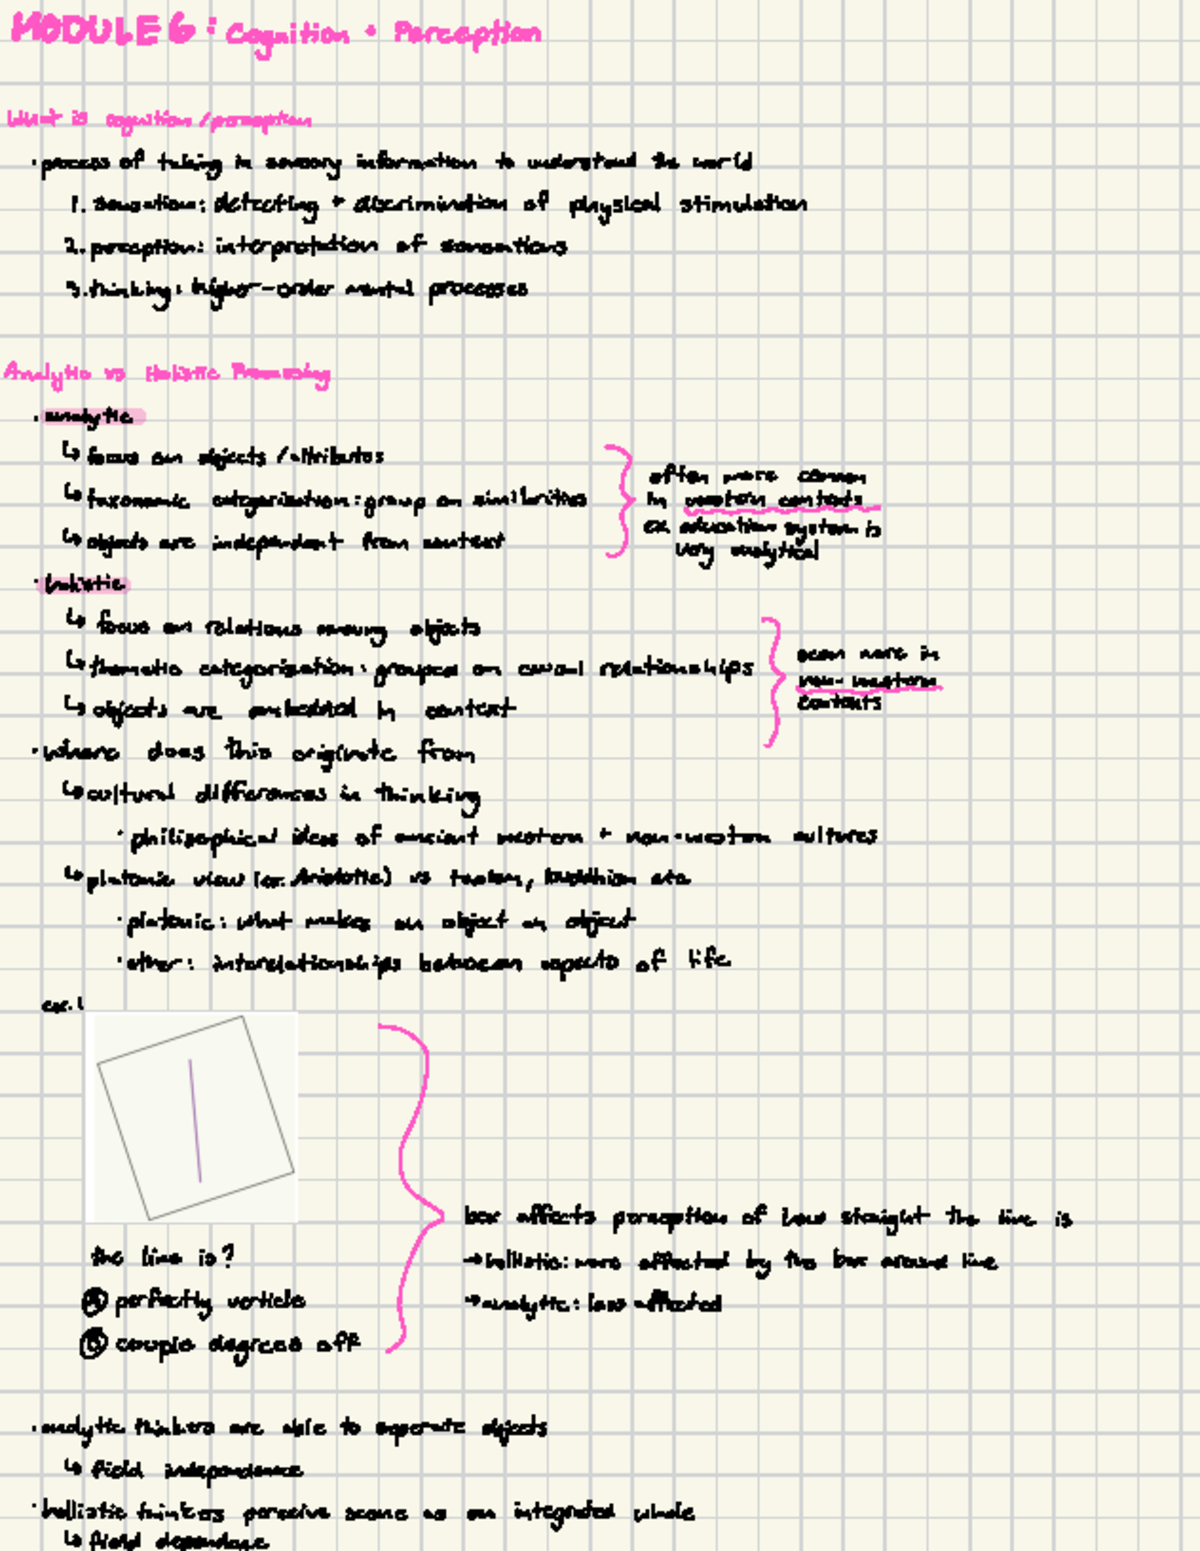 MODULE 6: Cognition + Perception
What is cognition/perception
· process of taking in sensory information to understand the world
1. sensation: detecting + discrimination of physical stimulation
2. perception: interpretation of sensations
3. thinking: higher-order mental processes
Analytic vs Holistic Processing
· analytic
↳ focus on objects/attributes
↳ taxonomic categorization: group on similarities
↳ objects are independent from context
often more common
in western contexts
ex. education system is
very analytical
· holistic
↳ focus on relations among objects
↳ thematic categorization: grouped on causal relationships
↳ objects are embedded in context
seen more in
non-western
contexts
· where does this originate from
↳ cultural differences in thinking
· philisophical ideas of ancient western + non-western cultures
↳ platonic view (ex. Aristotle) vs taoism, buddhism etc
· platonic: what makes an object an object
· other: interelationships between aspects of life
ex. 1
the line is?
A perfectly verticle
B couple degrees off
box affects perception of how straight the line is
→ hollistic: more affected by the box around line
→ analytic: less affected
· analytic thinkers are able to seperate objects
↳ field independence
· hollistic thinkers perceive scene as an integrated whole
↳ field dependence